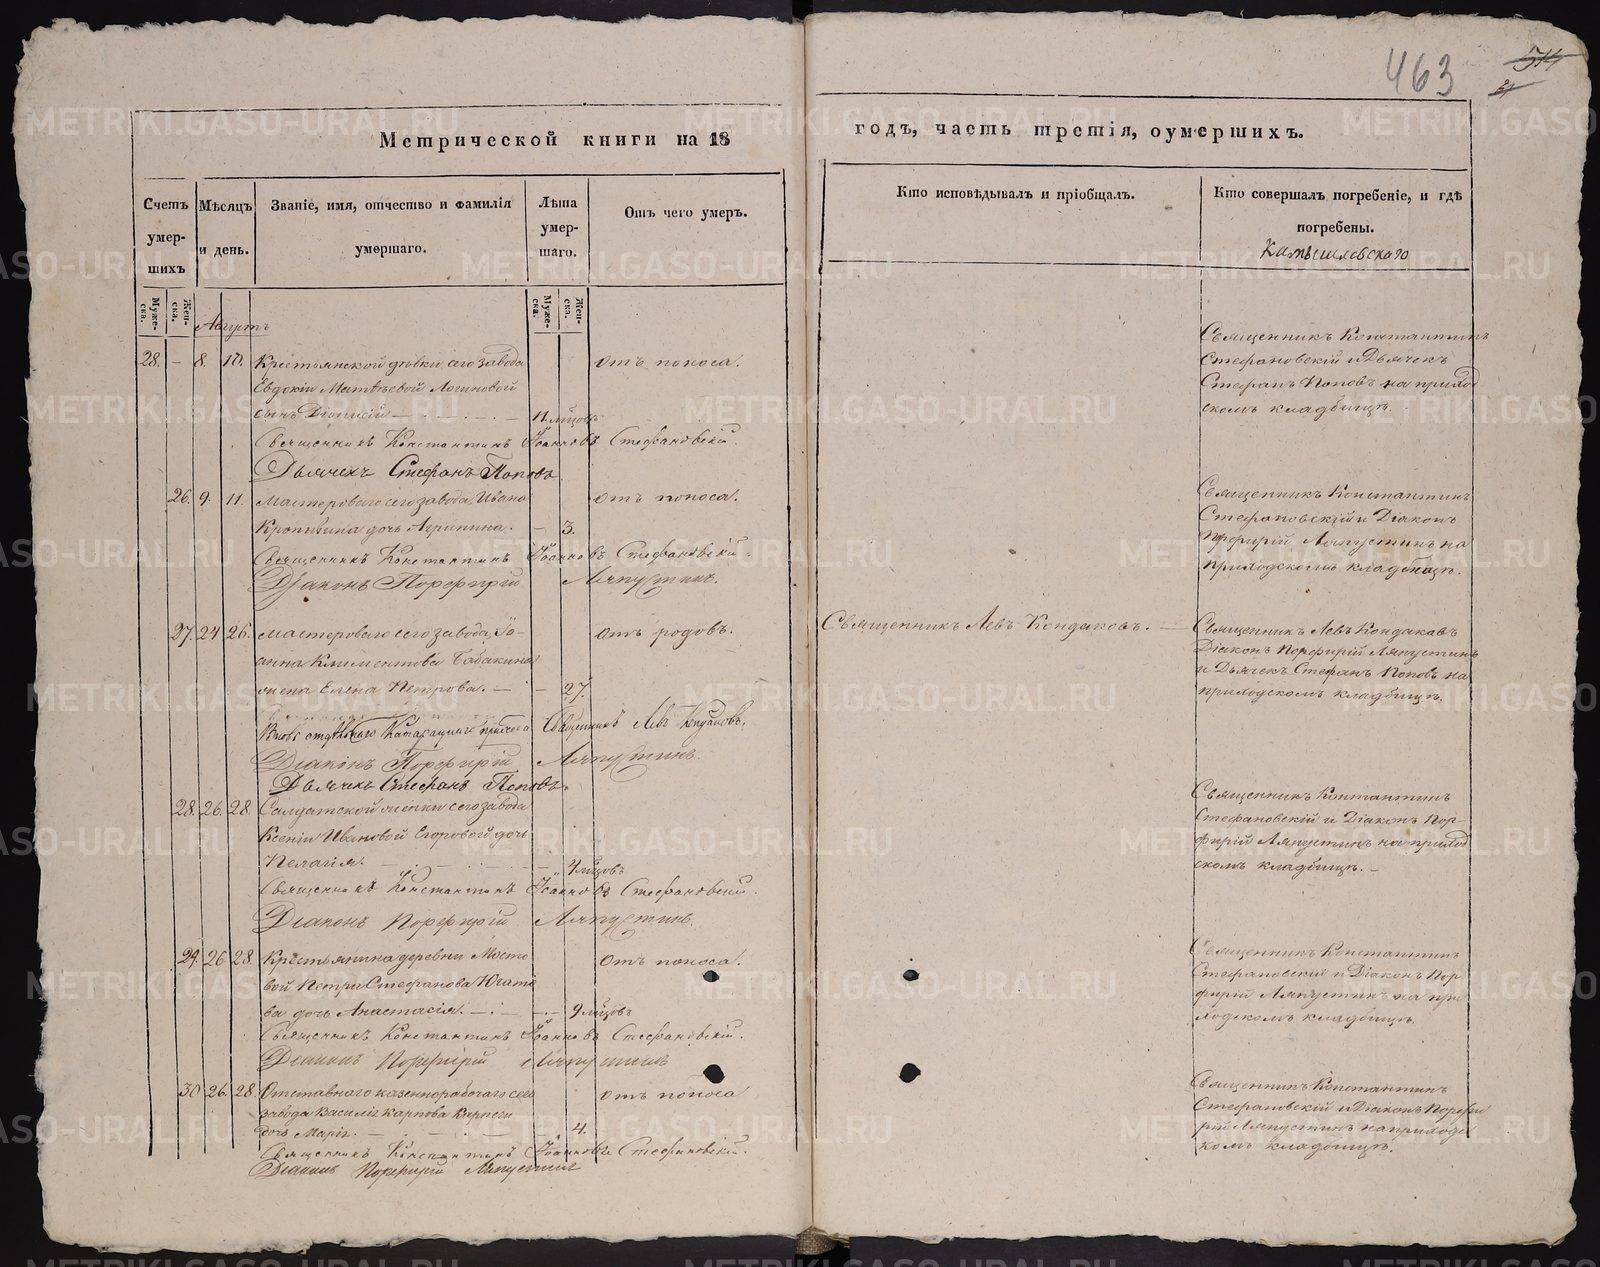 463
514
Метрической книги на 18
годъ, часть третія, оумершихъ.
Счетъ умер- шихъ
Мѣсяцъ и день.
Званіе, имя, отчество и фамилія умершаго.
Лѣта умер- шаго.
Отъ чего умеръ.
Кто исповѣдывалъ и пріобщалъ.
Кто совершалъ погребеніе, и гдѣ погребены.
Камышловскаго
Муже- ска.
Жен- ска.
Муже- ска.
Жен- ска.
Августъ
28. — 8. 10. Крестьянской дѣвки сего завода отъ поноса.
Евдокіи Матвѣевой Логиновой
сынъ Діонисій — 11 мѣсцовъ
Священникъ Константинъ Іоанновъ Стефановскій.
Дьячекъ Стефанъ Поповъ
Священникъ Константинъ
Стефановскій и Дьячекъ
Стефанъ Поповъ на приход
скомъ кладбищѣ.
26. 9. 11. Мастероваго сего завода Ивана отъ поноса.
Кропивина дочь Агрипина. — 3.
Священникъ Константинъ Іоанновъ Стефановскій.
Діаконъ Порфирій Ляпустинъ.
Священникъ Константинъ
Стефановскій и Діаконъ
Порфирій Ляпустинъ на
приходскомъ кладбищѣ.
27. 24 26. Мастероваго сего завода Іо- отъ родовъ.
анна Климентова Бабакина
жена Елена Петрова. — 27.
Священникъ Левъ Кондаковъ. —
Священникъ Левъ Кондаковъ.
Діаконъ Порфирій Ляпустинъ.
Дьячекъ Стефанъ Поповъ.
Священникъ Левъ Кондаковъ
Діаконъ Порфирій Ляпустинъ
и Дьячекъ Стефанъ Поповъ на
приходскомъ кладбищѣ.
28. 26. 28. Салдатской женки сего завода
Ксеніи Ивановой Егоровой дочь
Пелагія. — 4 мѣсцовъ
Священникъ Константинъ Іоанновъ Стефановскій.
Діаконъ Порфирій Ляпустинъ.
Священникъ Константинъ
Стефановскій и Діаконъ Пор-
фирій Ляпустинъ на приход
скомъ кладбищѣ. —
29. 26 28. Крестьянина деревни Мосто отъ поноса.
вой Петра Стефанова
ва дочь Анастасія. — 9 мѣсцовъ
Священникъ Константинъ Іоанновъ Стефановскій.
Діаконъ Порфирій Ляпустинъ
Священникъ Константинъ
Стефановскій и Діаконъ Пор-
фирій Ляпустинъ на при
ходскомъ кладбищѣ.
30 26. 28. Отставнаго казеннорабочаго сего отъ поноса
завода Василія Карпова
дочь Марія. — 4.
Священникъ Константинъ Іоанновъ Стефановскій.
Діаконъ Порфирій Ляпустинъ
Священникъ Константинъ
Стефановскій и Діаконъ Порфи
рій Ляпустинъ на приходс
комъ кладбищѣ.
METRIKI.GASO-URAL.RU